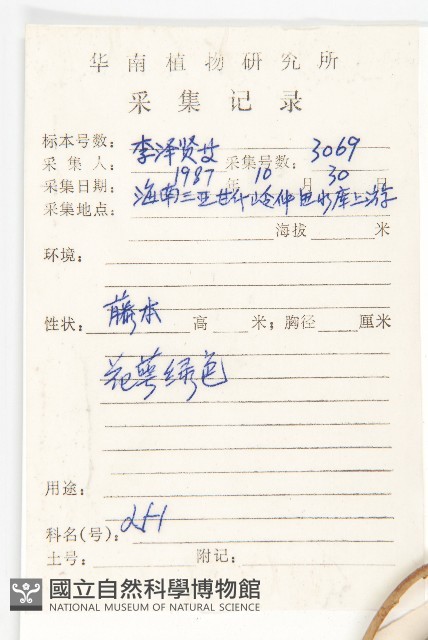 华南植物研究所
采集记录
标本号数：
采集人： 李泽贤 采集号数： 3069
采集日期： 1987 年 10 月 30
采集地点： 海南三亚甘什岭仲田水库上游
海拔 米
环境：
性状： 藤本 高 米；胸径 厘米
花萼绿色
用途：
科名(号)： 251
土号： 附记：
國立自然科學博物館
NATIONAL MUSEUM OF NATURAL SCIENCE